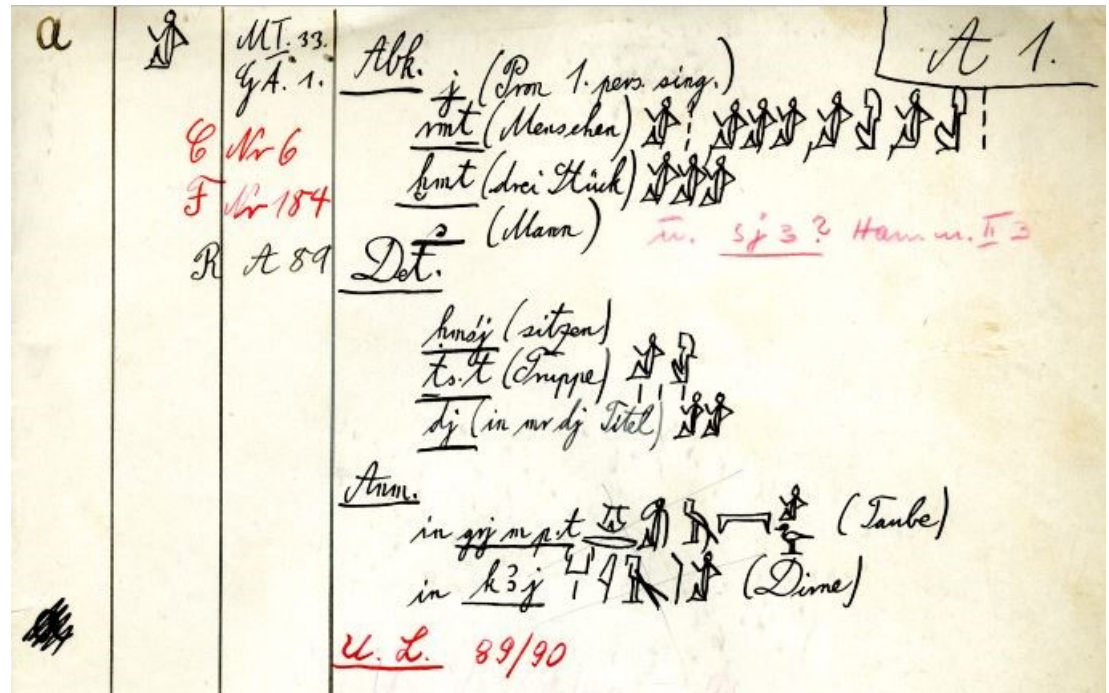 a 𓀀 MI. 33. A 1.
GÄ. 1.
C Nr 6
F Nr 184
R A 89
Abk.
j (Pron 1. pers. sing.)
rmṯ (Menschen)
ḫmt (drei Stück)
s (Mann)
u. sj3? Hamm. II 3
Det.
ḥmśj (sitzen)
ṯs.t (Truppe)
dj (in mr dj Titel)
Anm.
in m p.t (Taube)
in k3j (Dirne)
U. L. 89/90